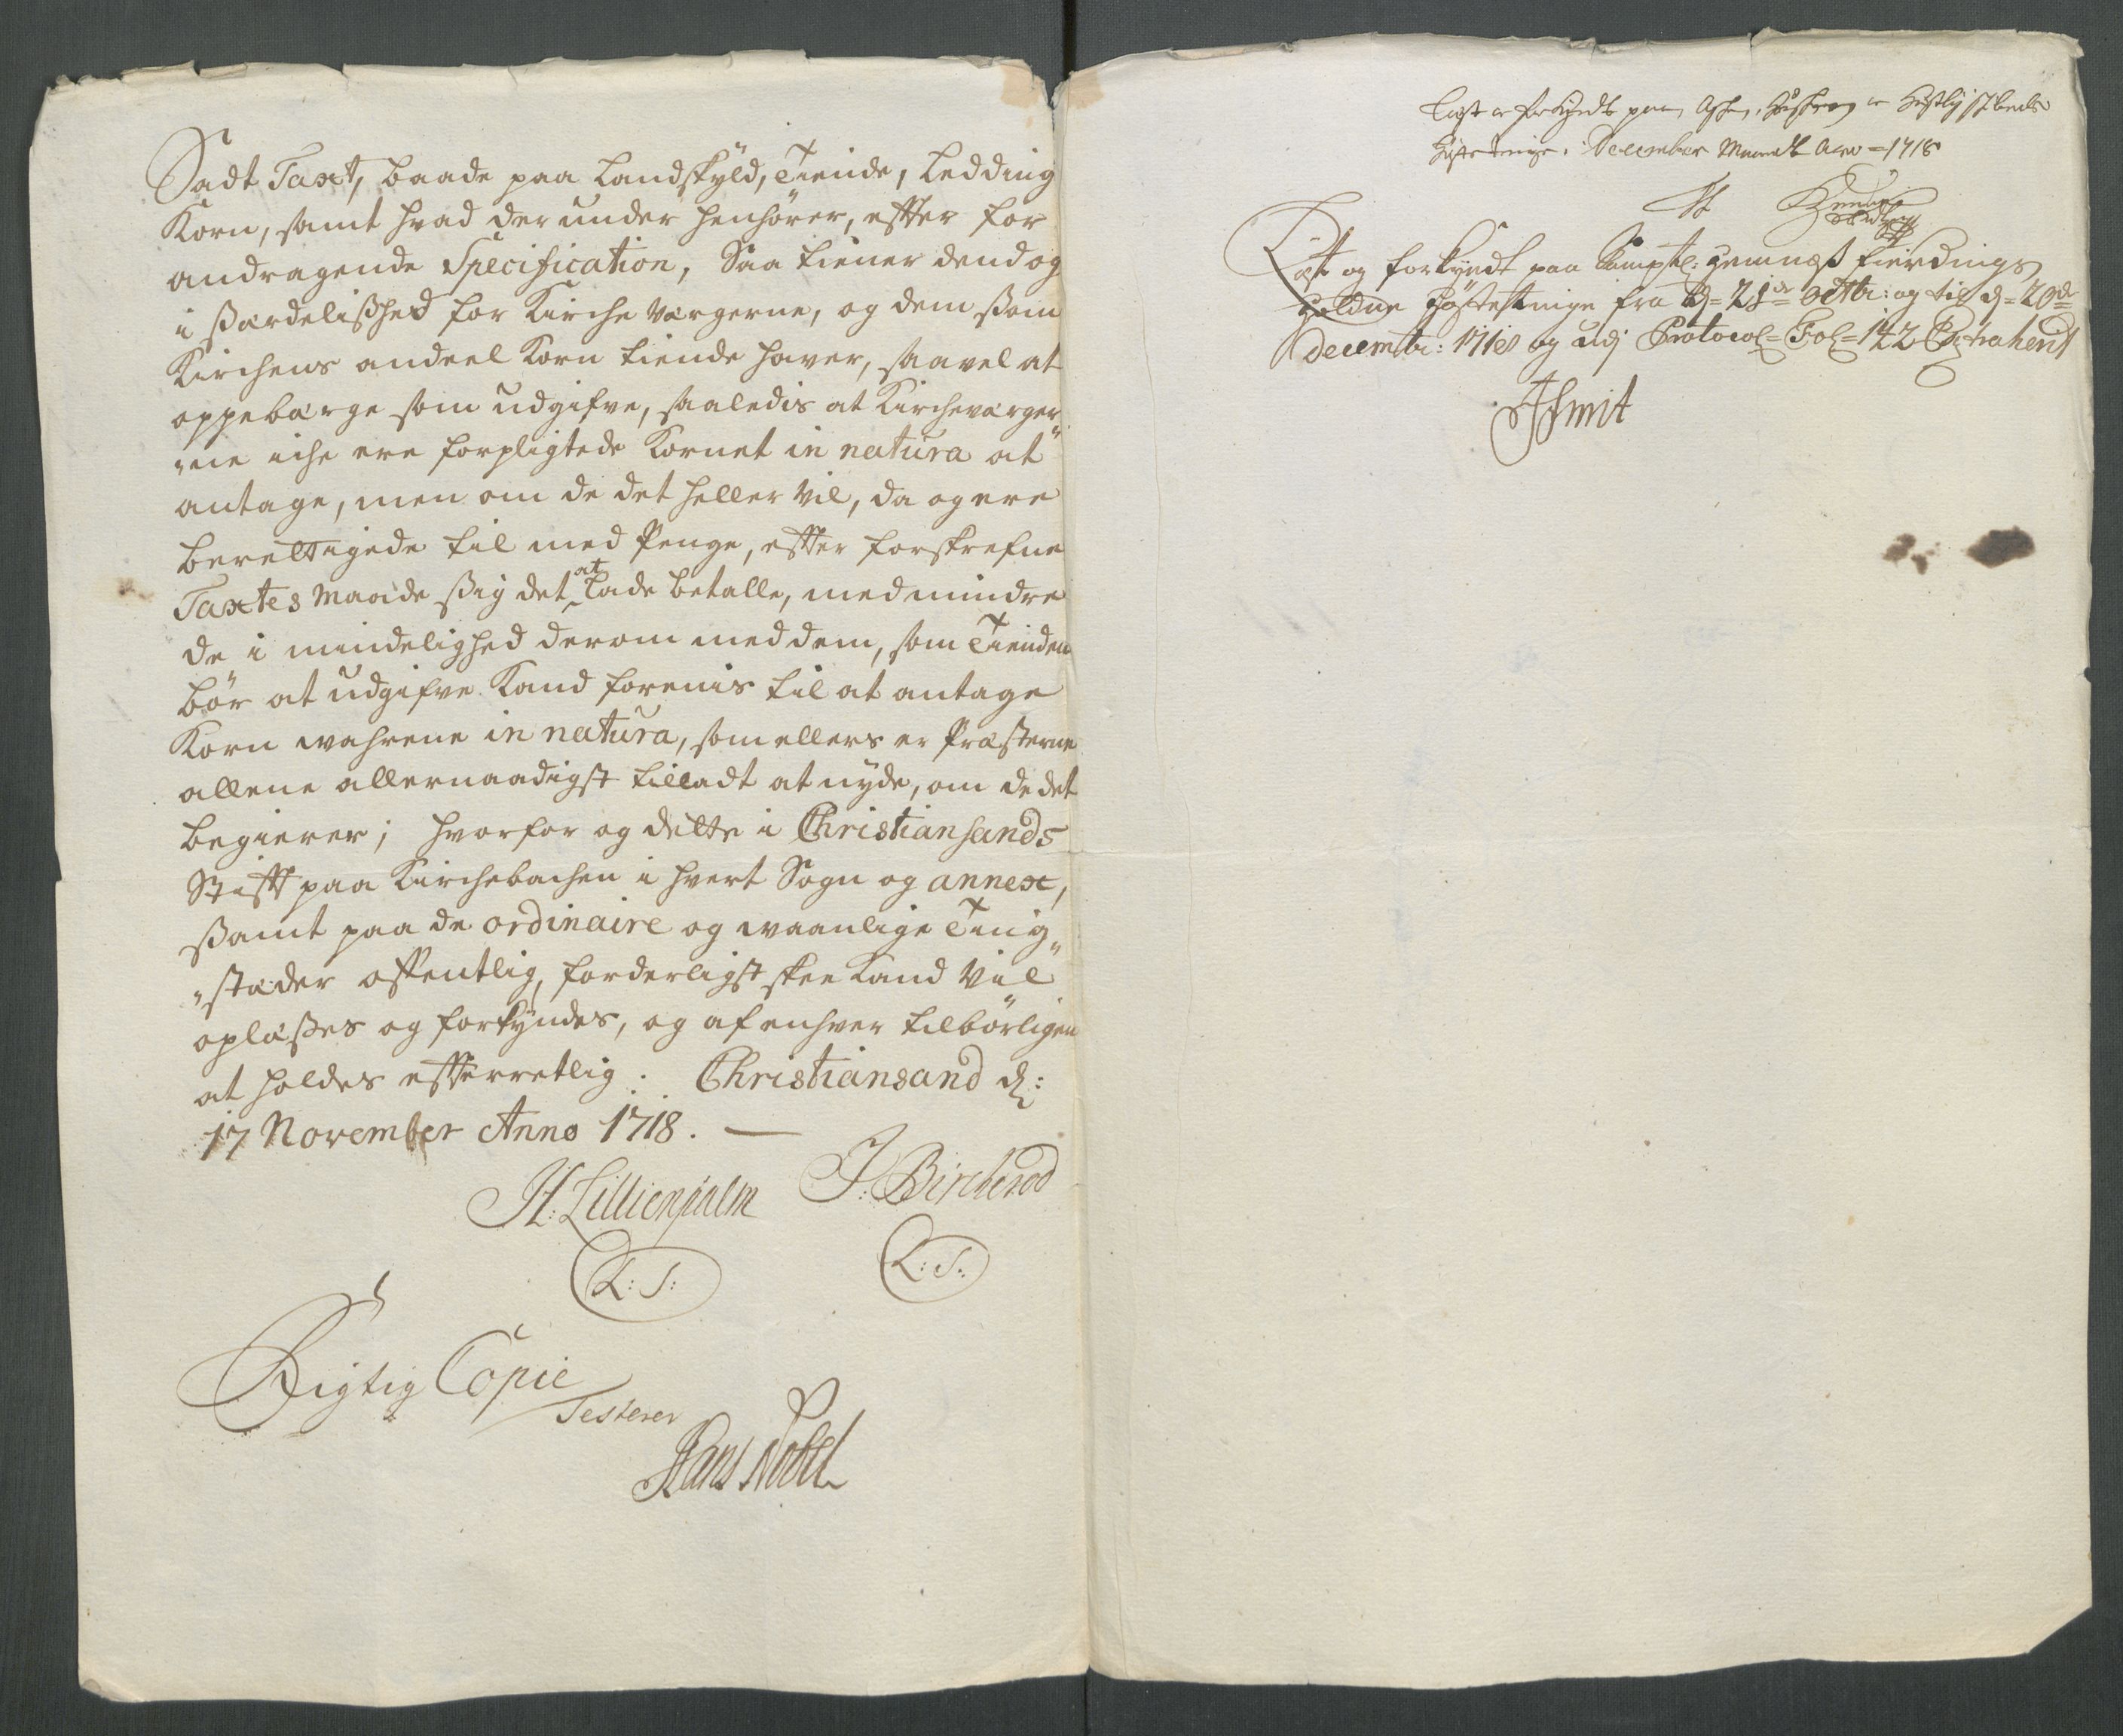 Sadt Taxt, baade paa Landskÿld, Tiende, Ledding
Korn, samt hvad derunder henhörer, effter for
andragende Specification, Saa tiener dend og
i ßærdelißhed for Kirche værgerne, og dem ßom
Kirchens andeel Korn tiende haver, saavel at
oppebærge som udgifve, saaledis at Kircheværger„
„ne iche ere forpligtede Kornet in natura at
antage, men om de det heller vil, da og ere
berettigede til med Penge, effter forskrefne
Taxtes Maade ßig det at lade betalle, medmindre
de i mindelighed derom med dem, som Tienden
bör at udgifve Kand forenis til at antage
Korn wahrene in natura, som ellers er Præsterne
allene allernaadigst tilladt at nyde, om de det
begierer; hvorfor og dette i Christiansands
Stifft paa Kirchebachen i hvert Sogn og annex,
ßamt paa de ordinaire og waanlige Ting„
„stæder offentlig, forderligst skee Kand vil
oplæßes og forkÿndes, og af enhver tilbörligen
at holdes effterretlig. Christiansand d:
17 November Anno 1718. —
H: Lillienpalm J: Bircherod
L: S: L: S:
Rigtig Copie
Testerer
Hans Nobel
Læst og forkyndt paa
Höste tinge i December Maanet Anno 1718
Læst og forkÿndt paa Samptl: Nemnæß fierdings
Holdne Höstetinge fra d= 28de Octbr: og til d= 20de
Decembr: 1718 og udj Protocol= Fol= 142 Extraherit
Smit